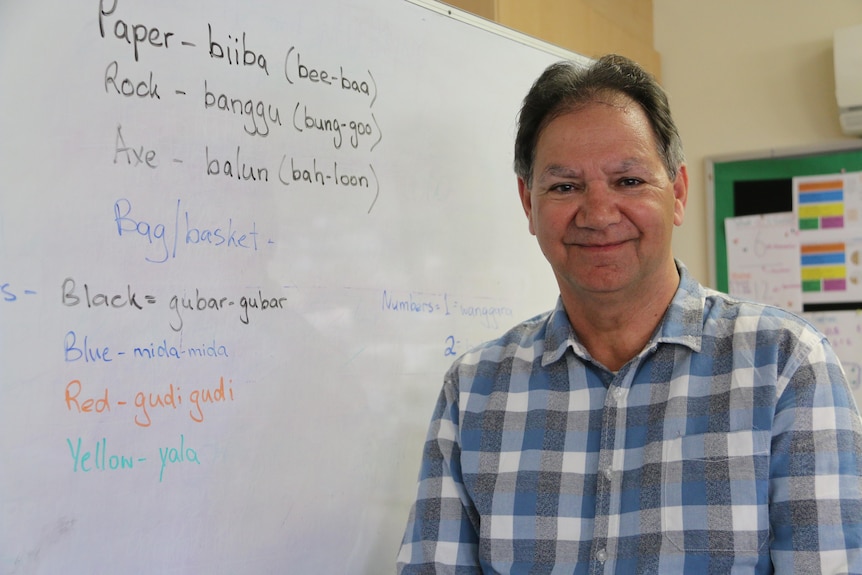 Paper - biiba (bee-baa)
Rock - banggu (bung-goo)
Axe - balun (bah-loon)
Bag/basket -
s - Black = gubar-gubar
Numbers = 1 =
Blue - mida-mida
2 -
Red - gudi gudi
Yellow - yala